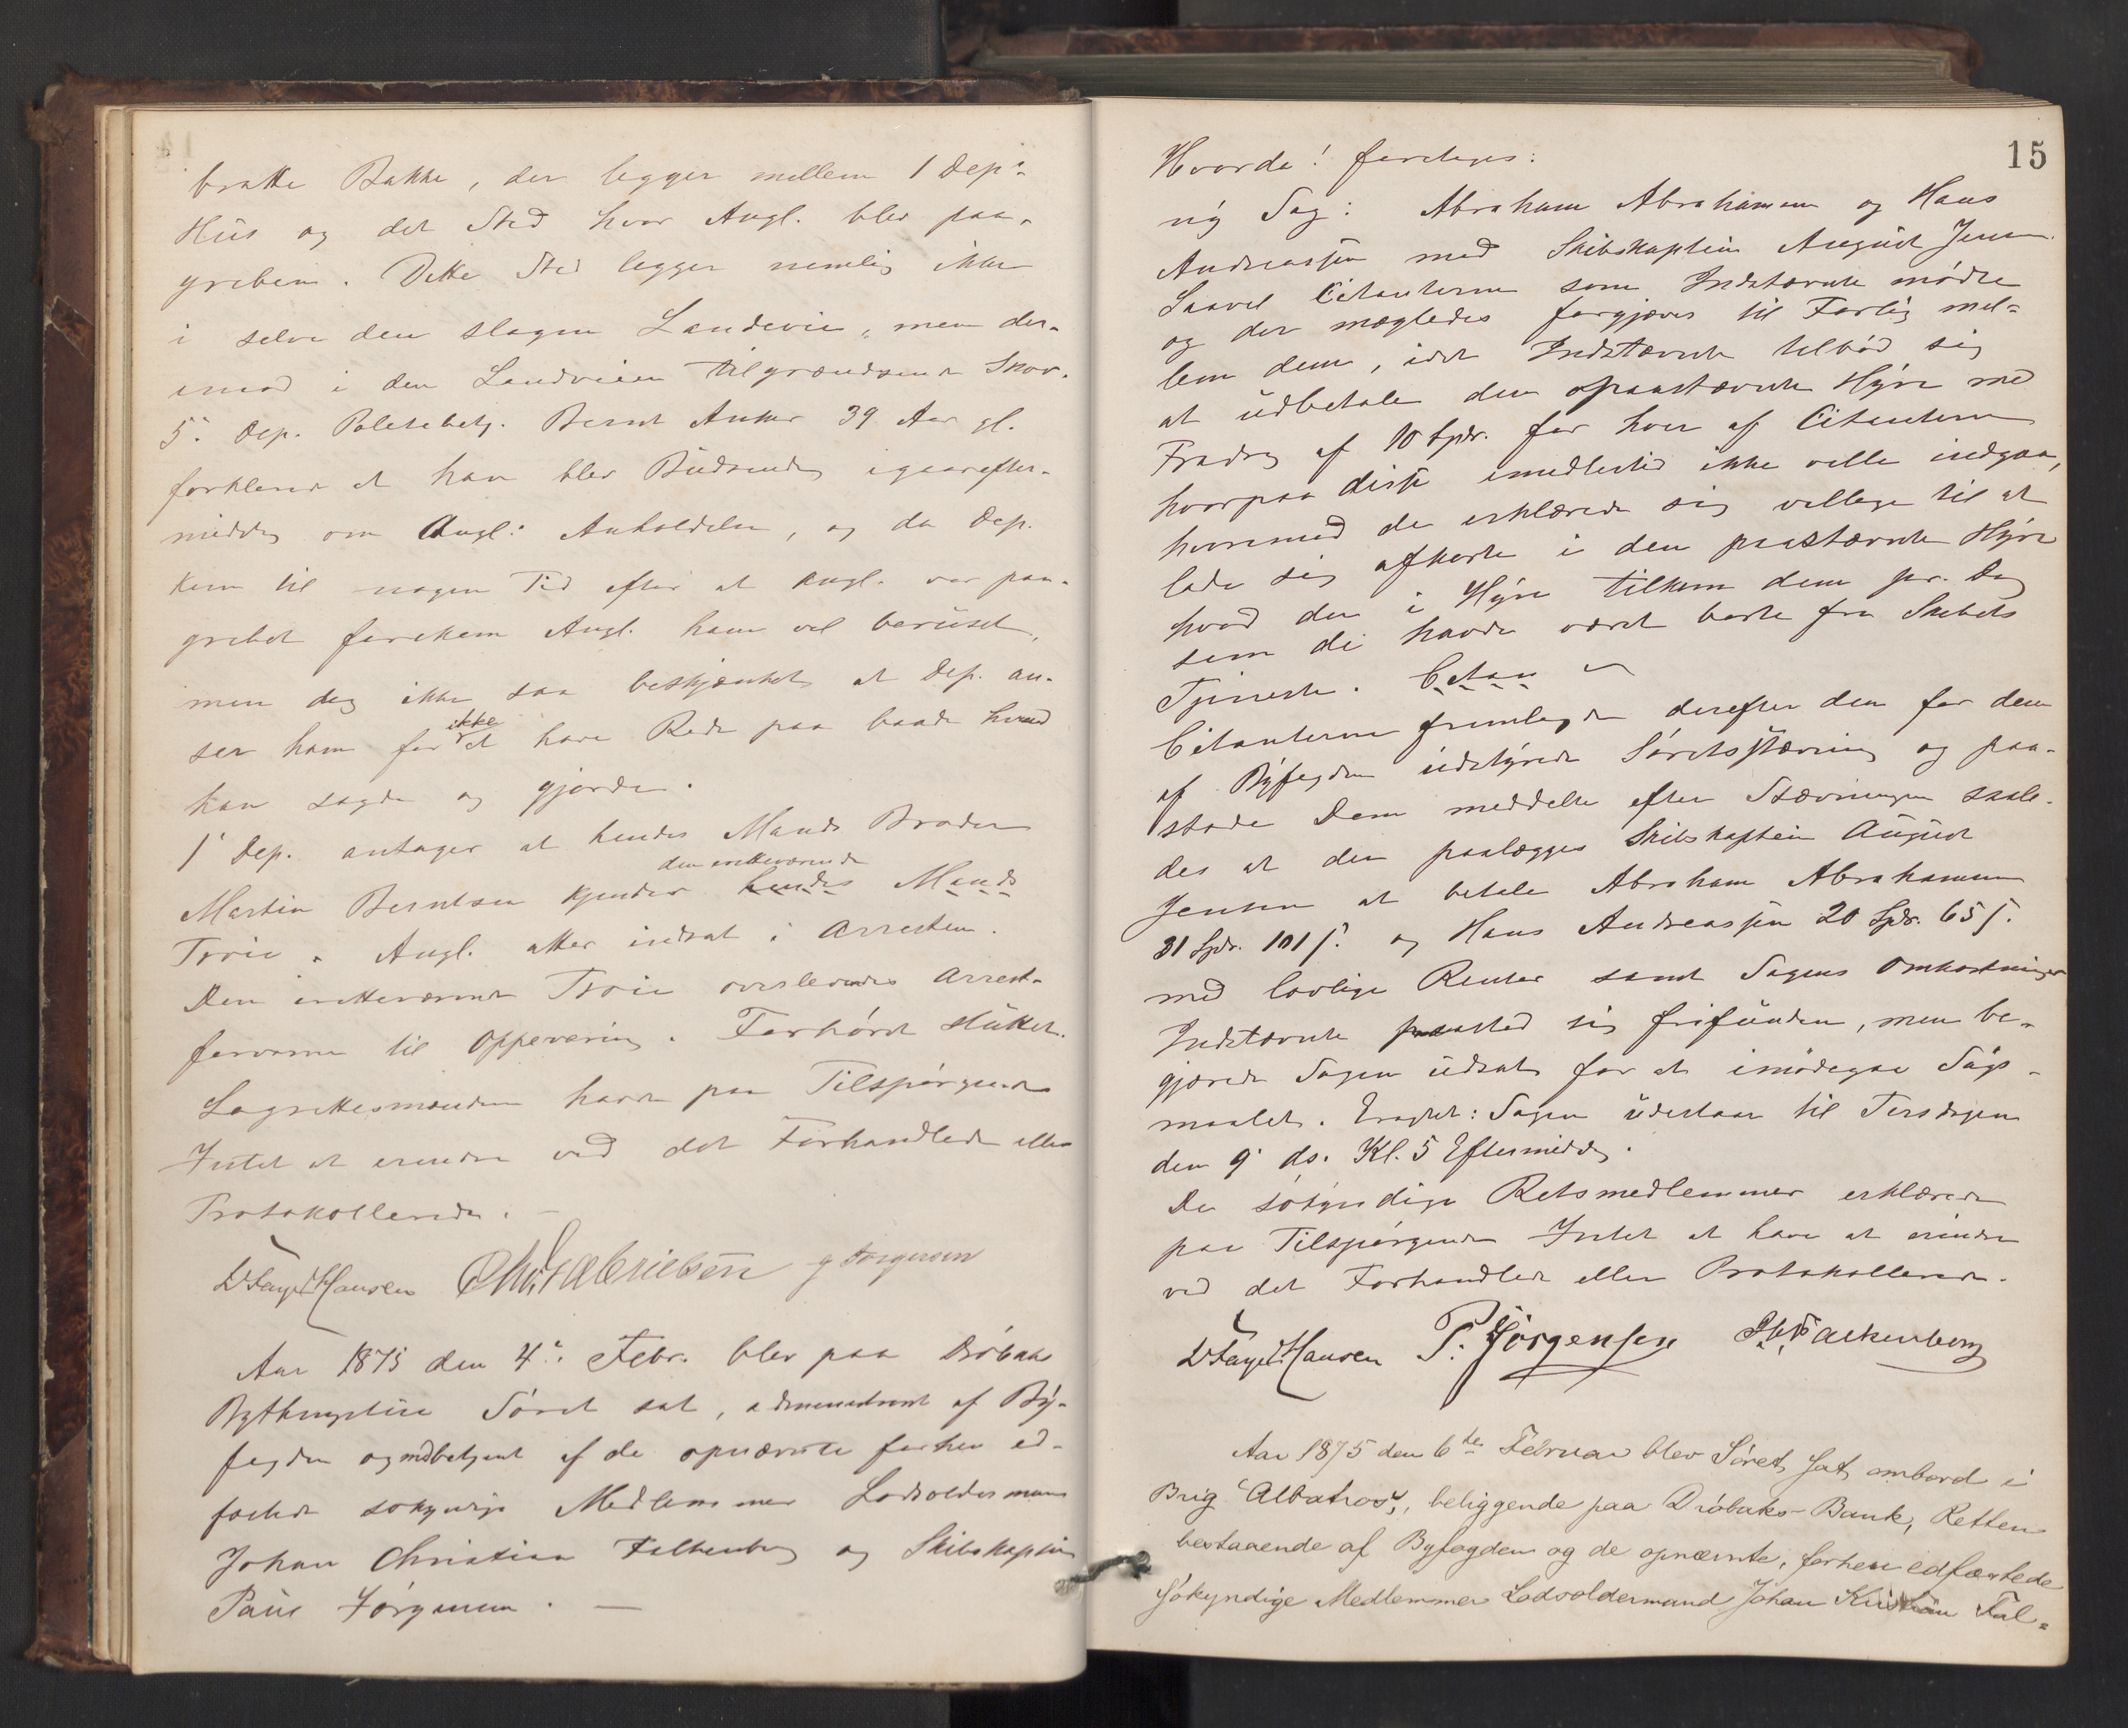 bratte Bakke, der legger mellem 1 Dep:
Hus og det Sted hvor Angl. blev paa-
greben. Dette Sted legger nemlig ikke
i selve den slagne Landevei, men der-
imod i den Landveien tilgrændsende Skov.
5. Dep. Politibetj. Bernt Anker 39 Aar gl.
forklared at han blev Budsendt igaarefter-
middag om Angl: Anholdelse, og da Dep.
kom til nogen Tid efter at Angl. var paa-
grebet forekom Angl. ham vel beruset,
men dog ikke saa beskjænket at Dep. an-
ser ham for ikke at have Rede paa baade hvad
han sagde og gjorde.
1 Dep. antager at hendes Mands Broder
den iretteværende
Martin Berntsen kjender hendes Mands
Trøie. Angl. atter indsat i Arresten.
Den iretteværende Trøie overleveredes Arrest-
forvareren til Opbevaring. Forhøret sluttet.
Lagrettesmændene havde paa Tilspørgende
Intet at erindre ved det Forhandlede eller
Protokollerede. —
D Faye Hansen Chr. Gabrielsen J Jørgensen
Aar 1875 den 4de Febr. blev paa Drøbaks
Bythingstue Søret sat, administreret af By-
fogden og medbetjent af de opnævnte forhen ed-
fæstede søkyndige Medlemmer Lodsoldermand
Johan Christian Falkenberg og Skibskaptein
Paul Jørgensen. —
15
Hvorda! foretoges:
ny Sag: Abraham Abrahamsen og Hans
Andreassen mod Skibskaptein August Jensen.
Saavel Citanterne som Indstævnte mødte
og der mægledes forgjæves til Forlig mel-
lem dem, idet Indstævnte tilbød sig
at udbetale den opaastævnte Hyre med
Fradrag af 10 Spdr. for hver af Citanterne
hvorpaa disse imidlertid ikke vilde indgaa,
hvorimod de erklærede sig villige til at
lade sig afkorte i den paastævnte Hyre
hvad der i Hyre tilkom dem pr. Dag
som de havde været borte fra Skibets
Tjeneste. Citan
Citanterne fremlagde derefter den for dem
af Byfogden udstyrede Søretsstævning og paa-
stode Dom meddelte efter Stævningen saale-
des at den paalægges Skibskaptein August
Jensen at betale Abraham Abrahamsen
31 Spdr. 101 s. og Hans Andreassen 20 Spdr. 65 s.
med lovlige Renter samt Sagens Omkostninger
Indstævnte paastod sig frifunden, men be-
gjærede Sagen udsat for at imødegaa Søgs-
maalet. Eragtet: Sagen udestaar til Tirsdagen
den 9 ds. Kl. 5 Eftermiddag.
De søkyndige Retsmedlemmer erklærede
paa Tilspørgende Intet at have at erindre
ved det Forhandlede eller Protokollerede.
D Faye Hansen P. Jørgensen J. C. Falkenberg
Aar 1875 den 6te Februar blev Søret sat ombord i
Brig "Albatros", beliggende paa Drøbaks-Bank, Retten
bestaaende af Byfogden og de opnævnte, forhen edfæstede
søkyndige Medlemmer Lodsoldermand Johan Kristian Fal-